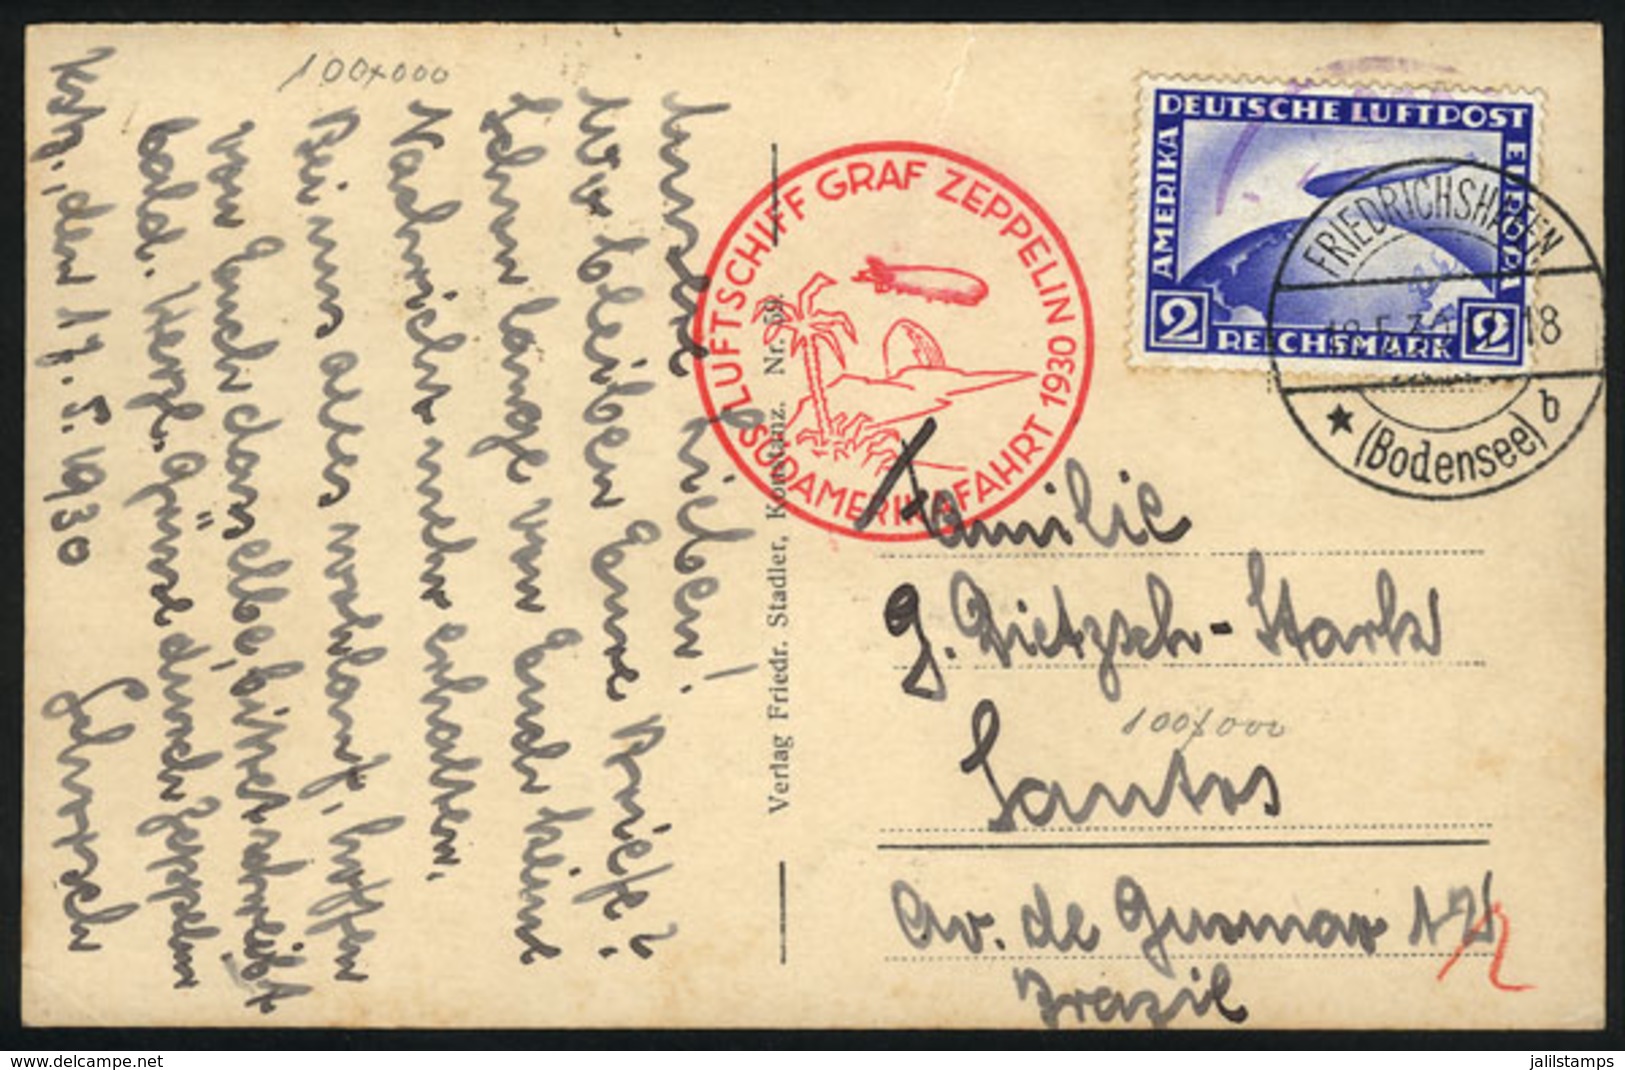 100x000
Kstz., den 17. 5. 1930
Unsere Lieben!
Wo bleiben Eure Briefe?
Schon lange von Euch keine
Nachricht mehr erhalten.
Bei uns alles wohlauf, hoffen
von Euch dasselbe, bitte schreibt
bald. Herzl. Grüsse durch Zeppelin
LUFTSCHIFF GRAF ZEPPELIN 1930
SÜDAMERIKAFAHRT
Verlag Friedr. Stadler, Konstanz. Nr. 59.
DEUTSCHE LUFTPOST
AMERIKA
EUROPA
2 REICHSMARK 2
FRIEDRICHSHAFEN
18.5.30 18
★ (Bodensee) b
Familie
G. Dietzsch-Stark
100x000
Santos
Av. de Gusmao
Brazil
www.delcampe.net
jalilstamps